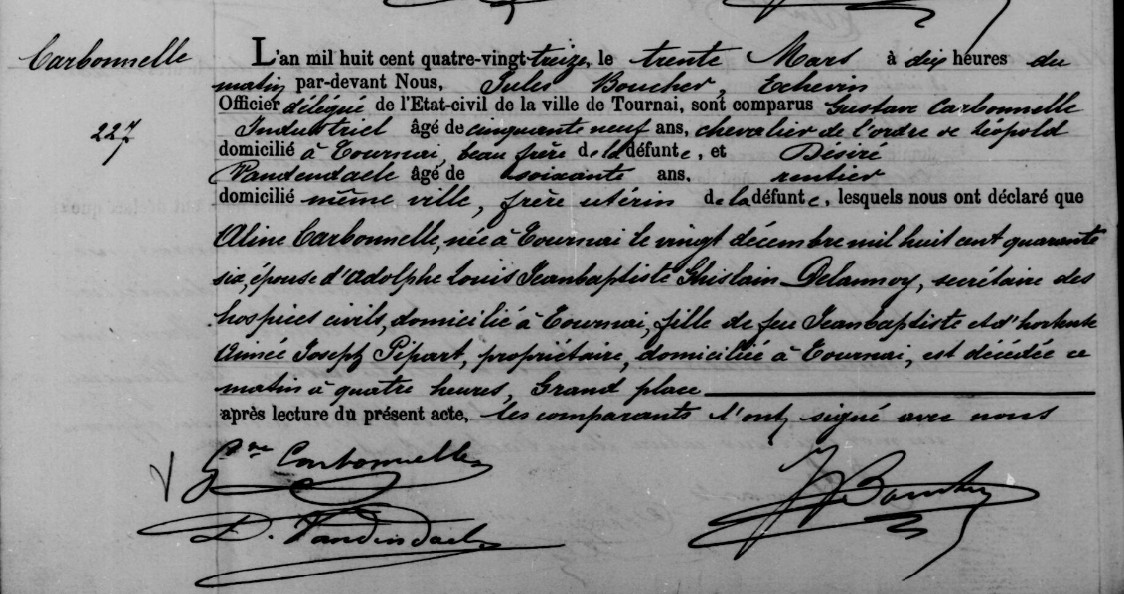 Carbonnelle
227
L'an mil huit cent quatre-vingt-treize, le trente Mars à dix heures du
matin par-devant Nous, Jules Boucher, Echevin
Officier délégué de l'Etat-civil de la ville de Tournai, sont comparus Gustave Carbonnelle
Industriel âgé de cinquante neuf ans, chevalier de l'ordre de Léopold
domicilié à Tournai, beau frère de la défunte, et Désiré
Vandendaele âgé de soixante ans, rentier
domicilié même ville, frère utérin de la défunte, lesquels nous ont déclaré que
Aline Carbonnelle, née à Tournai le vingt décembre mil huit cent quarante
six, épouse d'Adolphe Louis Jeanbaptiste Ghislain Delannoy, secrétaire des
hospices civils, domicilié à Tournai, fille de feu Jeanbaptiste et d'hortense
Aimée Joseph Pipart, propriétaire, domiciliée à Tournai, est décédée ce
matin à quatre heures, Grand place
après lecture du présent acte, les comparants l'ont signé avec nous
Gve Carbonnelle
J Boucher
D. Vandendaele